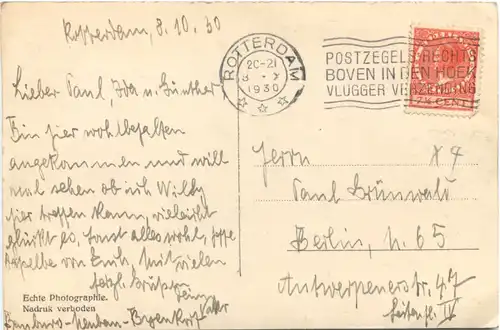 Rotterdam, 8.10.30
Lieber Paul, Ida u. Günther
Bin hier wohlbehalten
angekommen und will
mal sehen ob ich Willy
hier treffen kann, vielleicht
glückt es, sonst alles wohl, hoffe
dasselbe von Euch. Mit vielen
herzl. Grüßen
Echte Photographie.
Nadruk verboden
ROTTERDAM
20-21
8 X
1930
POSTZEGELS RECHTS
BOVEN IN DEN HOEK
VLUGGER VERZENDING
7½ CENT
Herrn
Paul Grünwald
Berlin, N. 65
Antwerpenerstr. 47